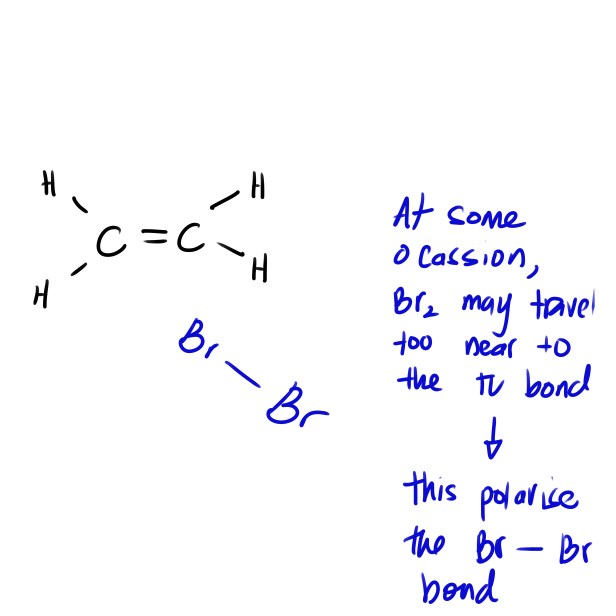 H H
C = C
H H
Br
Br
At some
ocassion,
Br₂ may travel
too near to
the π bond
↓
this polarise
the Br — Br
bond